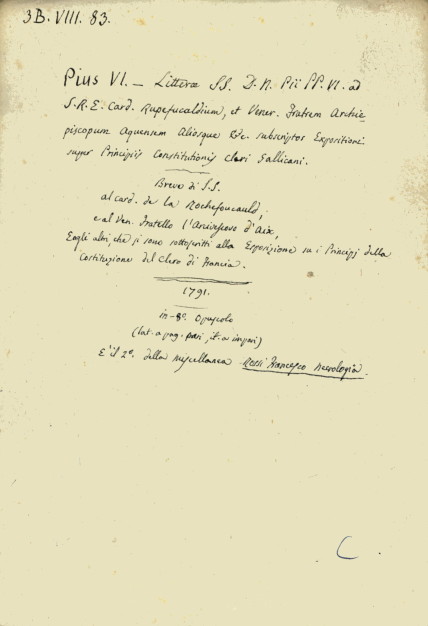 3B. VIII. 83.
Pius VI. — Litterae SS. D. N. Pii PP. VI. ad
S. R. E. Card. Rupefucaldium, et Vener. Fratrem Archie
piscopum Aquensem Aliosque &c. subscriptor Expositioni
super Principiis Constitutionis cleri Gallicani.
Breve di S.S.
al card. de la Rochefoucauld,
e al Ven. Fratello l'Arcivescovo d'Aix,
Eagli altri, che si sono sottoscritti alla Esposizione su i Principj della
Costituzione del Clero di Francia.
1791.
in-8°. Opuscolo
(lat. a pag. pari, it. a impari)
E' il 2°. della miscellanea Rossi Francesco Necrologia.